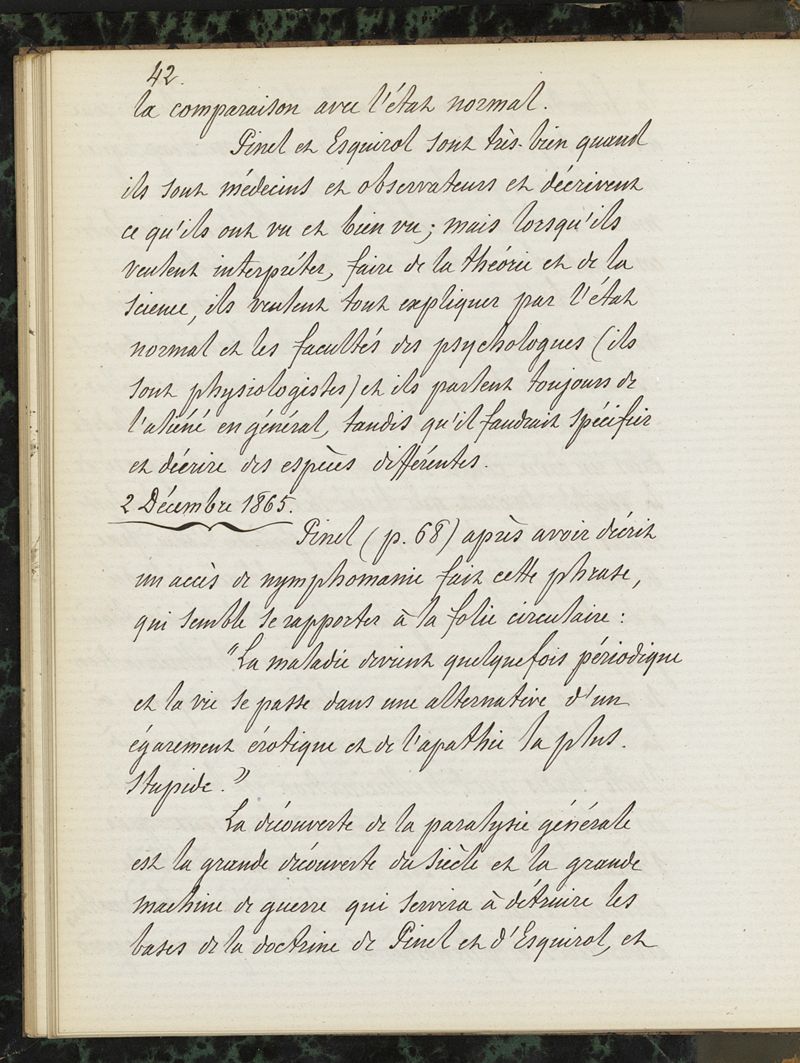 42.
la comparaison avec l'état normal.
Pinel et Esquirol sont très-bien quand
ils sont médecins et observateurs et décrivent
ce qu'ils ont vu et bien vu ; mais lorsqu'ils
veulent interpréter, faire de la théorie et de la
science, ils veulent tout expliquer par l'état
normal et les facultés des psychologues (ils
sont physiologistes) et ils partent toujours de
l'aliéné en général, tandis qu'il faudrait spécifier
et décrire des espèces différentes.
2 Décembre 1865.
Pinel (p. 68) après avoir décrit
un accès de nymphomanie fait cette phrase,
qui semble se rapporter à la folie circulaire :
"La maladie devient quelquefois périodique
et la vie se passe dans une alternative d'un
égarement érotique et de l'apathie la plus.
stupide."
La découverte de la paralysie générale
est la grande découverte du siècle et la grande
machine de guerre qui servira à détruire les
bases de la doctrine de Pinel et d'Esquirol, et